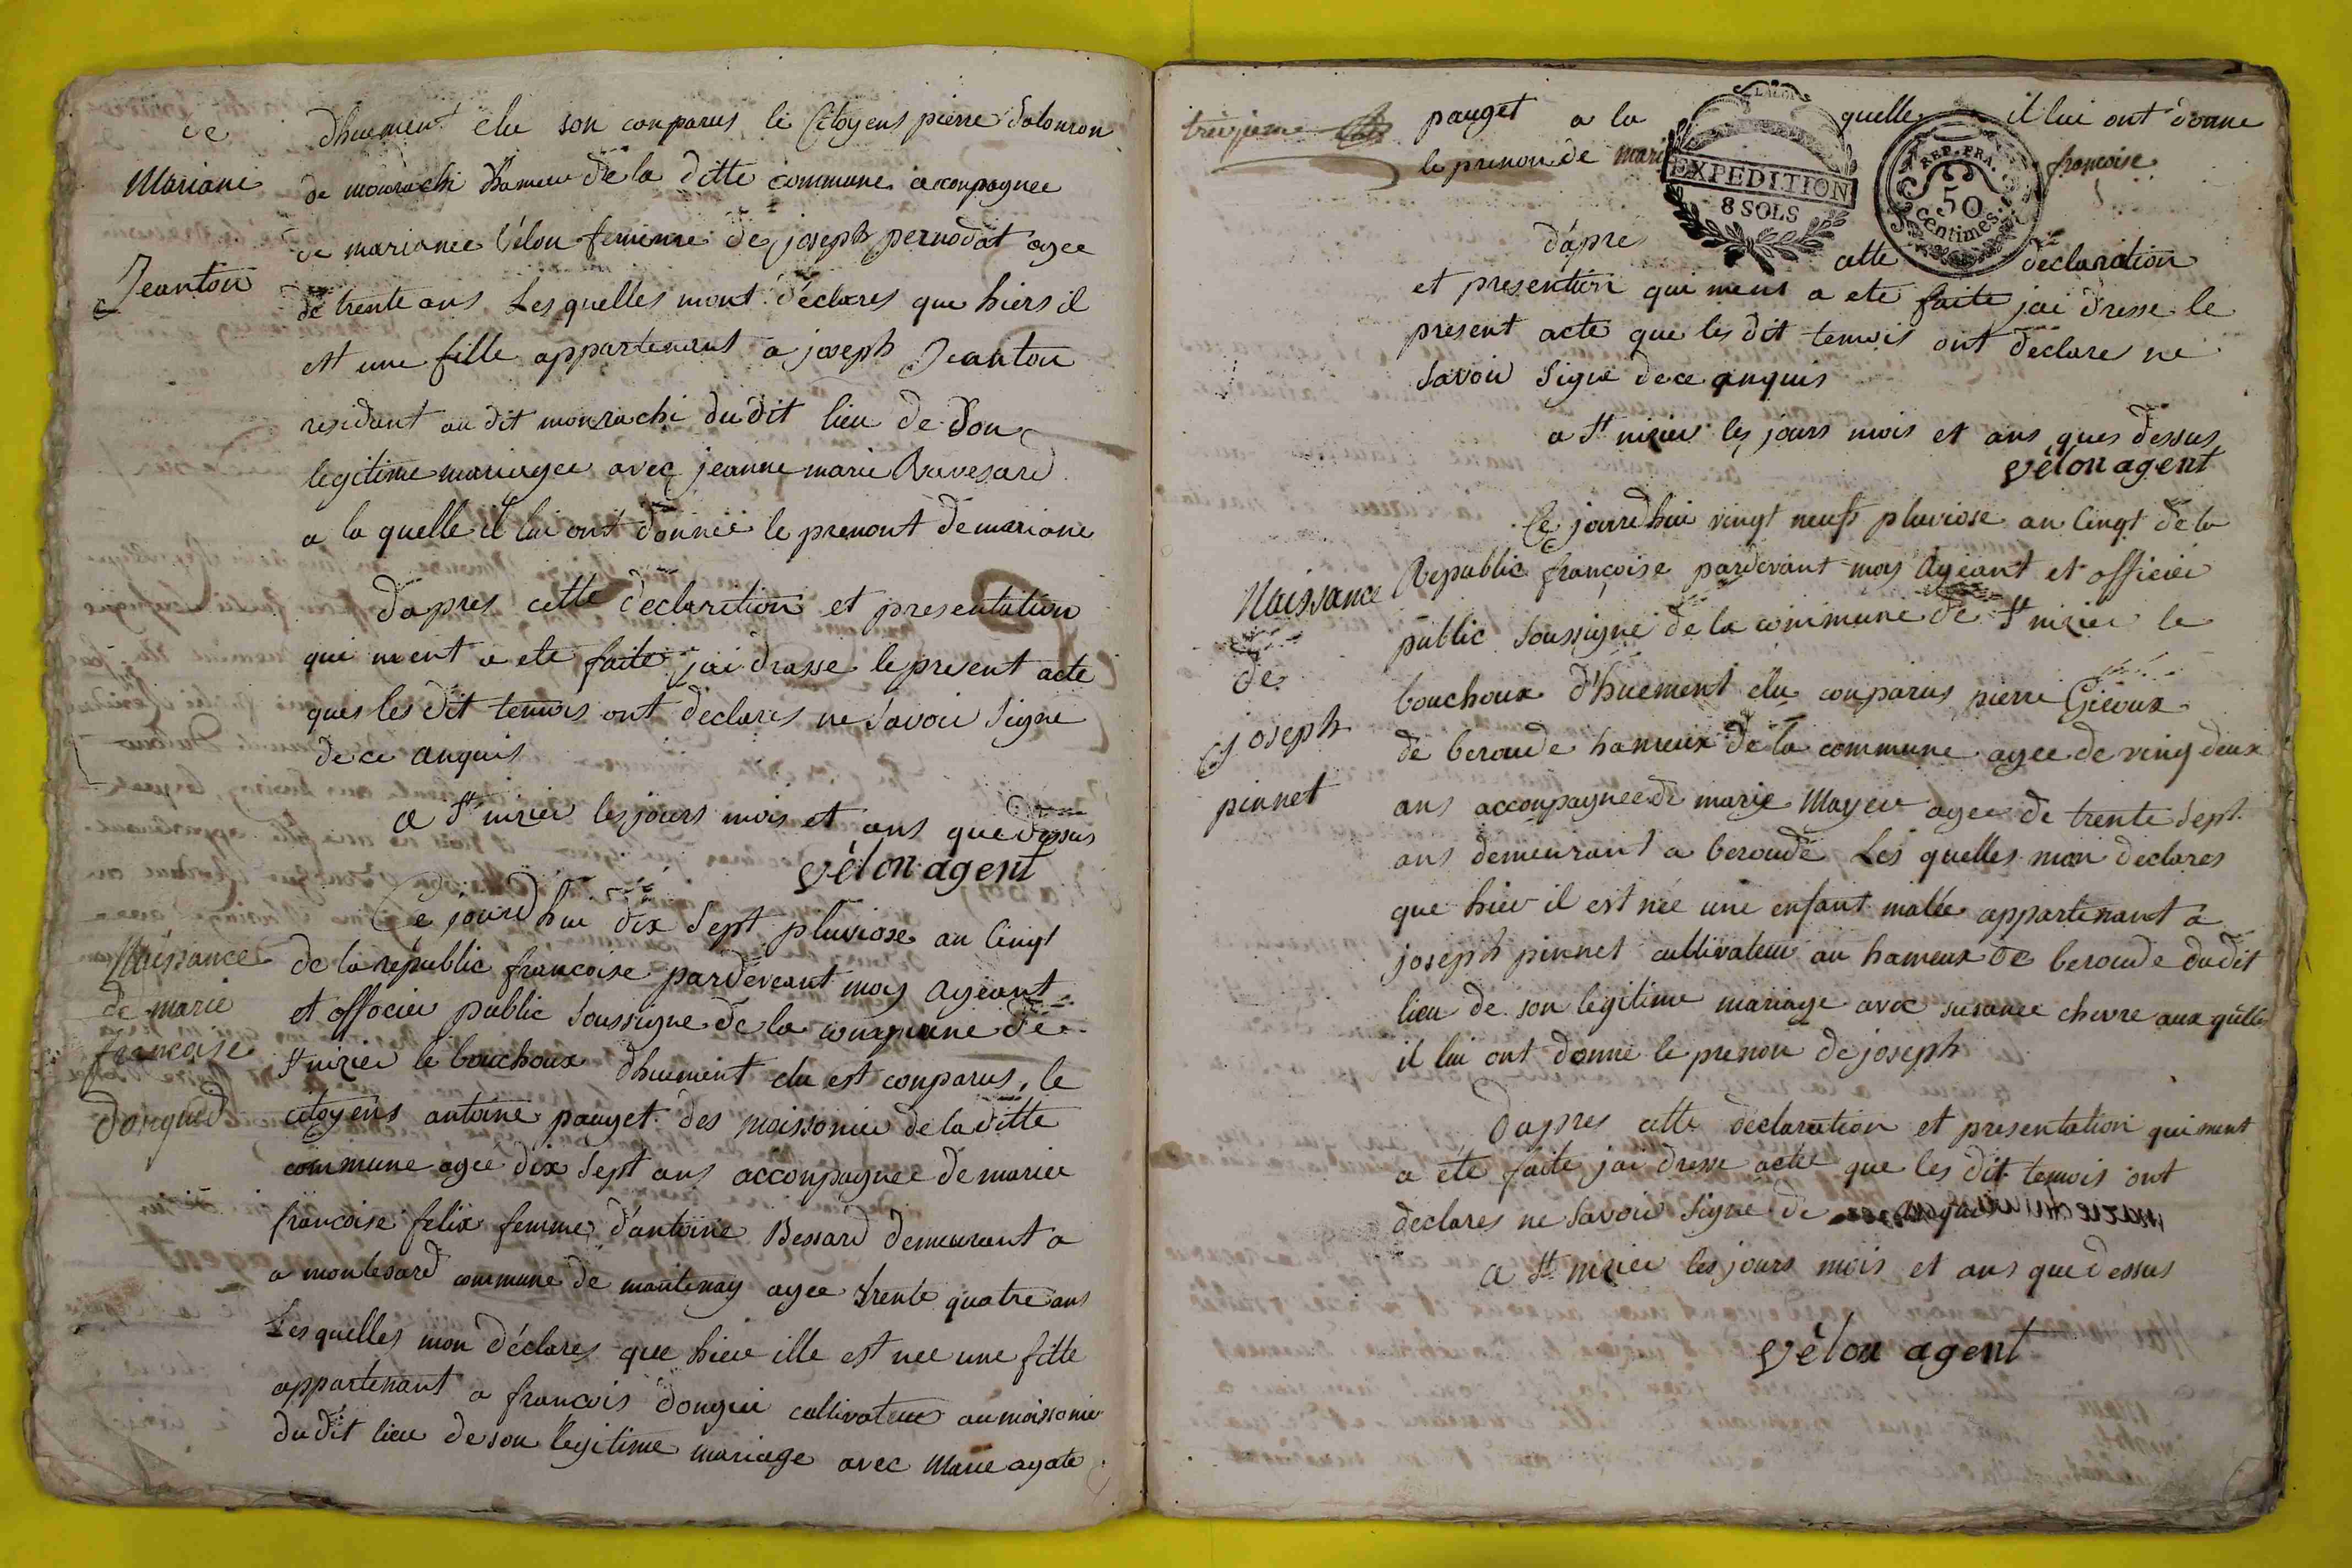 de
Mariane
Jeanton
dhuement elu son conparus le Citoyens pierre dalonron
de monrachi hameu de la ditte commune aconpagnee
de marianee Vélon femme de joseph pernodat agee
de trente ans Les quelles mont déclares que hiers il
est une fille appartenant a joseph Jeanton
residant au dit monrachi du dit lieu de Son
legitime mariagee avec jeanne marie Ravesard
a la quelle il lui ont donnée le prenont de mariane
dapres cette declaration et presentation
qui ment a ete faite jai drasse le present acte
ques les dit temois ont declares ne Savoir Signe
de ce anquis
a St nizier les jours mois et ans que dessus
vélon agent
Naissance
de marie
francoise
donguod
Ce jourdhui dix Sept pluviose an Cinqt
de la republic francoise pardeveant moy ageant
et officier public Soussigne de la commune de
St nizier le bouchoux dhuement elu est conparus, le
citoyens antoine pauget des maissonie de la ditte
commune agee dix Sept ans acconpagnee de mariee
francoise felix femme d'antoine Bessard demeurant a
a montesard commune de mantenay agee trente quatre ans
Les quelles mon déclares que hier ille est nee une fille
appartenant a francois donguı cultivateur au maissonie
du dit lieu de son legitime mariage avec Marie agate
treizieme
pauget a la quelle il lui ont donne
le prenon de mari francoise
LA LOI
EXPEDITION
8 SOLS
REP. FRA.
50
centimes.
dapre cette declaration
et presention qui ment a ete faite jai dresse le
present acte que les dit temois ont declare ne
Savoir Signe de ce anquis
a St nizier les jours mois et ans ques dessus
vélon agent
Naissance
de
joseph
pinnet
Ce jourdhui vingt neufs pluviose an Cingt de la
Republic françoise pardevant moy Ageant et officier
public Soussigne de la commune de St nizier le
bouchoux d'huement elu conparus pierre Giroux
de beroude hameux de la commune agee de ving deux
ans acconpagnee de marie Mayer agee de trente Sept
ans demeurant a beroude Les quelles mon declares
que hier il est née une enfant malle appartenant a
joseph pinnet cultivateur au hameux de beroude du dit
lieu de son legitime mariage avec susanee chevre aux quelle
il lui ont donne le prenon de joseph
Dapres cette declaration et presentation qui ment
a ete faite jai dresse acte que les dit temois ont
declares ne Savoir Signe de
a St nizier les jours mois et ans que dessus
vélon agent